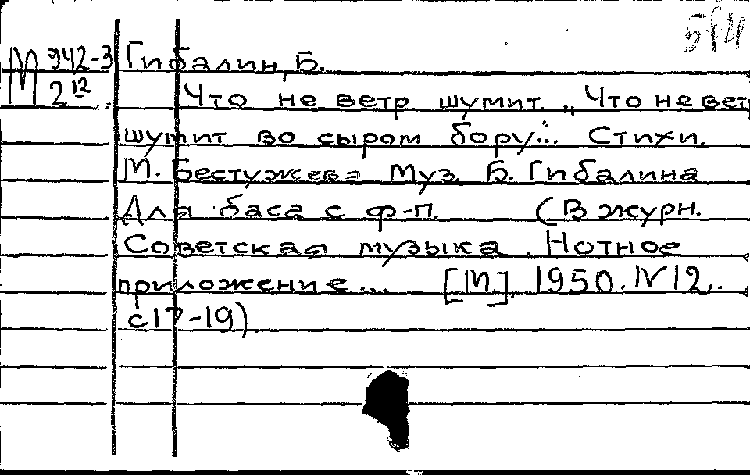 М 942-3 Гибалин, Б.
2 12 Что не ветр шумит. „Что не вет
шумит во сыром бору... Стихи.
М. Бестужева Муз. Б. Гибалина
Для баса с ф-п. (В журн.
Советская музыка. Нотное
приложение... [М], 1950. № 12.
с 17-19).